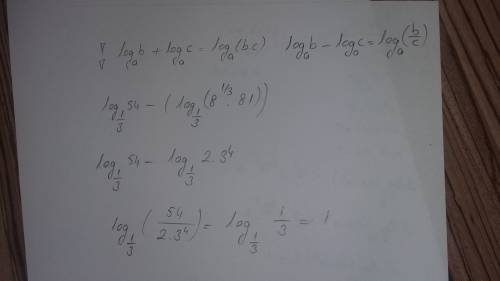 log_a b + log_a c = log_a (b.c) log_a b - log_a c = log_a (b/c)
log_{1/3} 54 - (log_{1/3} (8^{1/3} . 81))
log_{1/3} 54 - log_{1/3} 2.3^4
log_{1/3} (54/2.3^4) = log_{1/3} 1/3 = 1